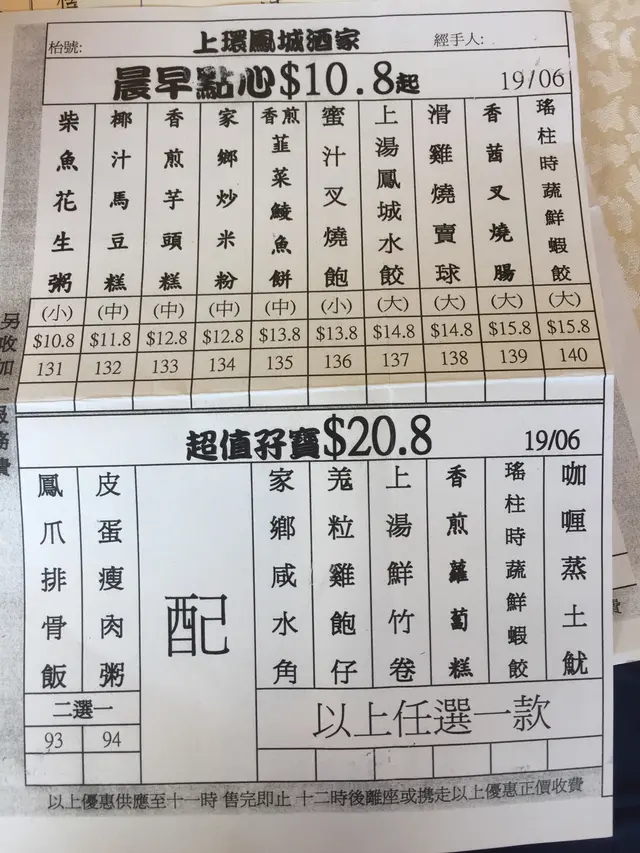 枱號:
上環鳳城酒家
經手人:
晨早點心$10.8起
19/06
柴魚花生粥
椰汁馬豆糕
香煎芋頭糕
家鄉炒米粉
香煎韮菜鯪魚餅
蜜汁叉燒飽
上湯鳳城水餃
滑雞燒賣球
香茜叉燒腸
瑤柱時蔬鮮蝦餃
(小) (中) (中) (中) (中) (小) (大) (大) (大) (大)
$10.8 $11.8 $12.8 $12.8 $13.8 $13.8 $14.8 $14.8 $15.8 $15.8
131 132 133 134 135 136 137 138 139 140
另收加一服務費
超值孖寶$20.8
19/06
鳳爪排骨飯
皮蛋瘦肉粥
配
家鄉咸水角
羗粒雞飽仔
上湯鮮竹卷
香煎蘿蔔糕
瑤柱時蔬鮮蝦餃
咖喱蒸土魷
二選一
93 94
以上任選一款
以上優惠供應至十一時 售完即止 十二時後離座或携走以上優惠正價收費